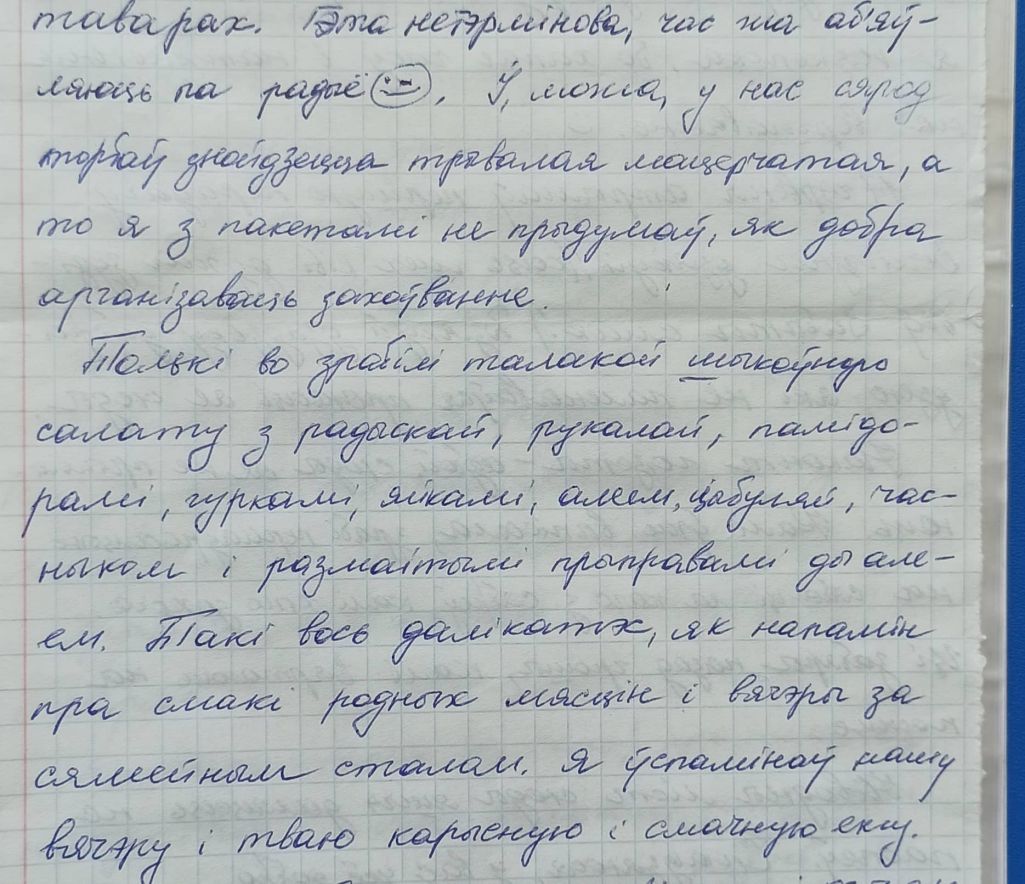 таварах. Гэта нетэрмінова, час жа аб'яў-
ляюць па радыё. І, можа, у нас сярод
торбаў знойдзецца трывалая мацерчатая, а
то я з пакетамі не прыдумаў, як добра
арганізаваць захоўванне.
Толькі во зрабілі талакой
салату з радыскай, рукалай, памідо-
рамі, гуркамі, яйкамі, алеем, цыбуляй, час-
ныком і размаітымі прыправамі ды але-
ем. Такі вось далікатэс, як напамін
пра смакі родных мясцін і вячэры за
сямейным сталом. Я ўспамінаў нашу
вячэру і тваю карысную і смачную ежу.